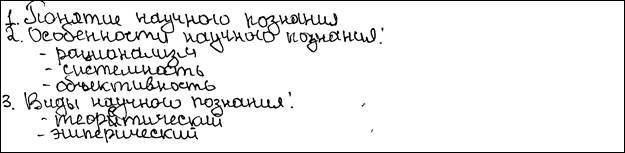 1. Понятие научного познания
2. Особенности научного познания:
- рационализм
- системность
- объективность
3. Виды научного познания:
- теоретический
- эмперический